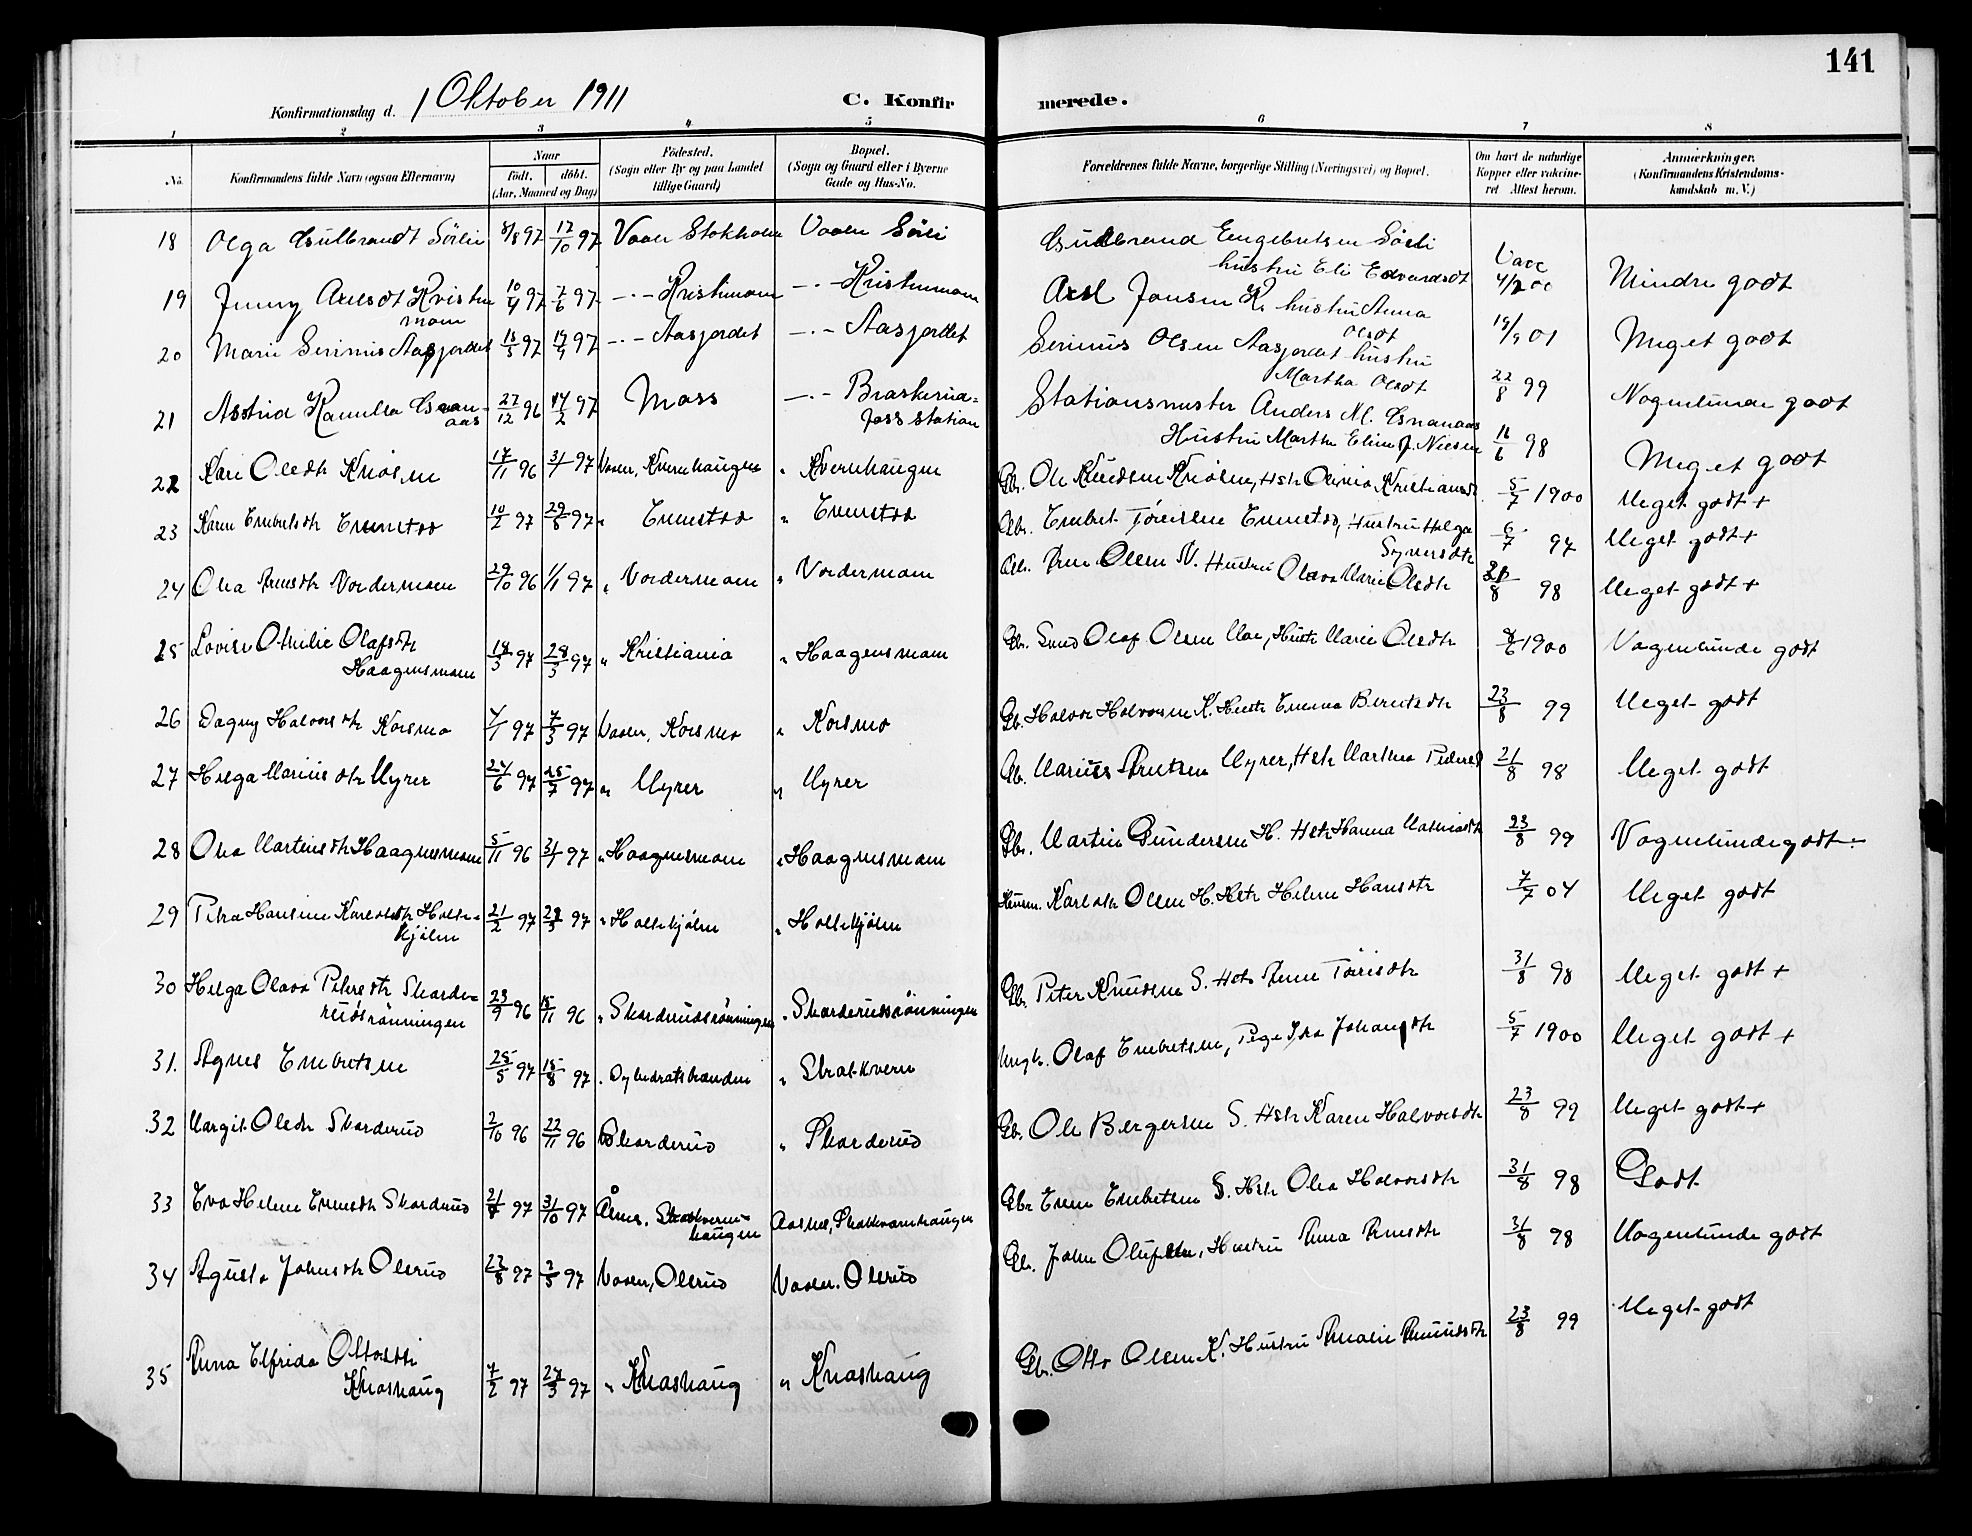 141
Konfirmationsdag d. 1 Oktober 1911 C. Konfirmerede.
1 2 3 4 5 6 7 8
No. Konfirmandens fulde Navn (ogsaa Efternavn) Naar födt. döbt. (Aar, Maaned og Dag) Födested. (Sogn eller By og paa Landet tillige Gaard) Bopæl. (Sogn og Gaard eller i Byerne Gade og Hus-No. Forældrenes fulde Navne, borgerlige Stilling (Næringsvei) og Bopæl. Om havt de naturlige Kopper eller vaccineret Attest herom. Anmærkninger. (Konfirmandens Kristendomskundskab m. V.)
18 Olga Gulbrandt Sörli 8/8 97 17/10 97 Vaaler Stokholm Vaaler Sörli Gulbrand Engebretsen Sörli hustru Eli Edvardsdt Vacc 4/2 00 Mindre godt
19 Jenny Axelsdt Kristumom 10/4 97 7/6 97 -"- Kristumom -"- Kristumom Axel Jonsen K. hustru Anna Olsdt 19/9 01 Meget godt
20 Marie Serinus Aasjordet 18/5 97 17/9 97 -"- Aasjordet -"- Aasjordet Serinus Olsen Aasjordet hustru Martha Olsdt 22/8 99 Nogenlunde godt
21 Astrid Kamilla Granaas 27/12 96 14/2 97 Moss -"- Braskerudfoss station Stationsmester Anders M. Granaas Hustru Martha Eline f. Nielsen 16/6 98 Meget godt
22 Kari Olsdtr Knösen 17/11 96 3/1 97 Vaaler, Kvernhaugen " Kvernhaugen Gbr. Ole Knudsen Knösen, Hstr Olivia Kristiansdt 5/7 1900 Meget godt +
23 Karen Embretsdtr Evenstad 10/2 97 29/8 97 " Evenstad " Evenstad Gbr. Embret Töresen Evenstad, Hustru Helga Syversdtr 6/7 97 Meget godt +
24 Olea Arnesdtr Nordermoen 29/10 96 1/1 97 " Nordermoen " Nordermoen Gbr. Arne Olsen N. Hustru Olava Marie Olsdtr 8 98 Meget godt +
25 Lovise Othilie Olafsdtr Haagensmoen 14/3 97 28/3 97 " Kristiania " Haagensmoen Gbr. Svend Olaf Olsen Moe, Hustr Marie Olsdtr 6 1900 Nogenlunde godt
26 Dagny Halvorsdtr Korsmo 97 7/3 97 Vaaler, Korsmo " Korsmo Gb. Halvor Halvorsen K. Hustr Emma Berntsdtr 23/8 99 Meget godt
27 Helga Mariusdtr Myrer 24/6 97 25/7 97 " Myrer " Myrer Gb. Marius Arntsen Myrer, Hstr Marthea Pedersd 21/8 98 Meget godt
28 Olea Martinsdtr Haagensmoen 5/11 96 3/1 97 " Haagensmoen " Haagensmoen Gbr. Martin Gundersen H. Hstr Hanna Mathiasdtr 23/8 99 Nogenlunde godt
29 Petra Hansine Karlotdtr Holtekjölen 21/2 97 3 97 " Holtekjölen " Holtekjölen Husm. Karl Olsen H. Hstr Helene Hansdtr 7/7 04 Meget godt
30 Helga Olava Petersdtr Skarderudsrönningen 23/9 96 15/11 96 " Skarderudsrönningen " Skarderudsrönningen Gbr. Peter Knudsen S. Hstr Anne Törrisdtr 31/8 98 Meget godt +
31. Agnes Embretsen 25/5 97 15/8 97 " Dybedratsbranden " Skratkvern Ungk. Olaf Embretsen, Pige Ida Johansdtr 5/7 1900 Meget godt +
32 Margit Olsdtr Skarderud 2/10 96 22/11 96 Skarderud " Skarderud Gbr. Ole Bergersen S. Hstr Karen Halvorsdtr 23/8 99 Meget godt +
33 Eva Helene Evensdtr Skarderud 97 31/10 97 Åsnes. Skratkvernhaugen Aasnes, Skatkvarnhaugen Gbr Even Embretsen S. Hstr Olea Halvorsdtr 31/8 98 Godt
34 Agusta Johnsdtr Olerud 97 97 Vaaler, Olerud Vaaler. Olerud Gbr. John Olufsen, Hustru Anna Arnesdtr 31/8 98 Nogenlunde godt
35 Anna Elfrida Ottosdtr Knashaug 7/2 97 27/3 97 " Knashaug " Knashaug Gbr. Otto Olsen K. Hustru Amalie Amundsdtr 23/8 99 Meget godt